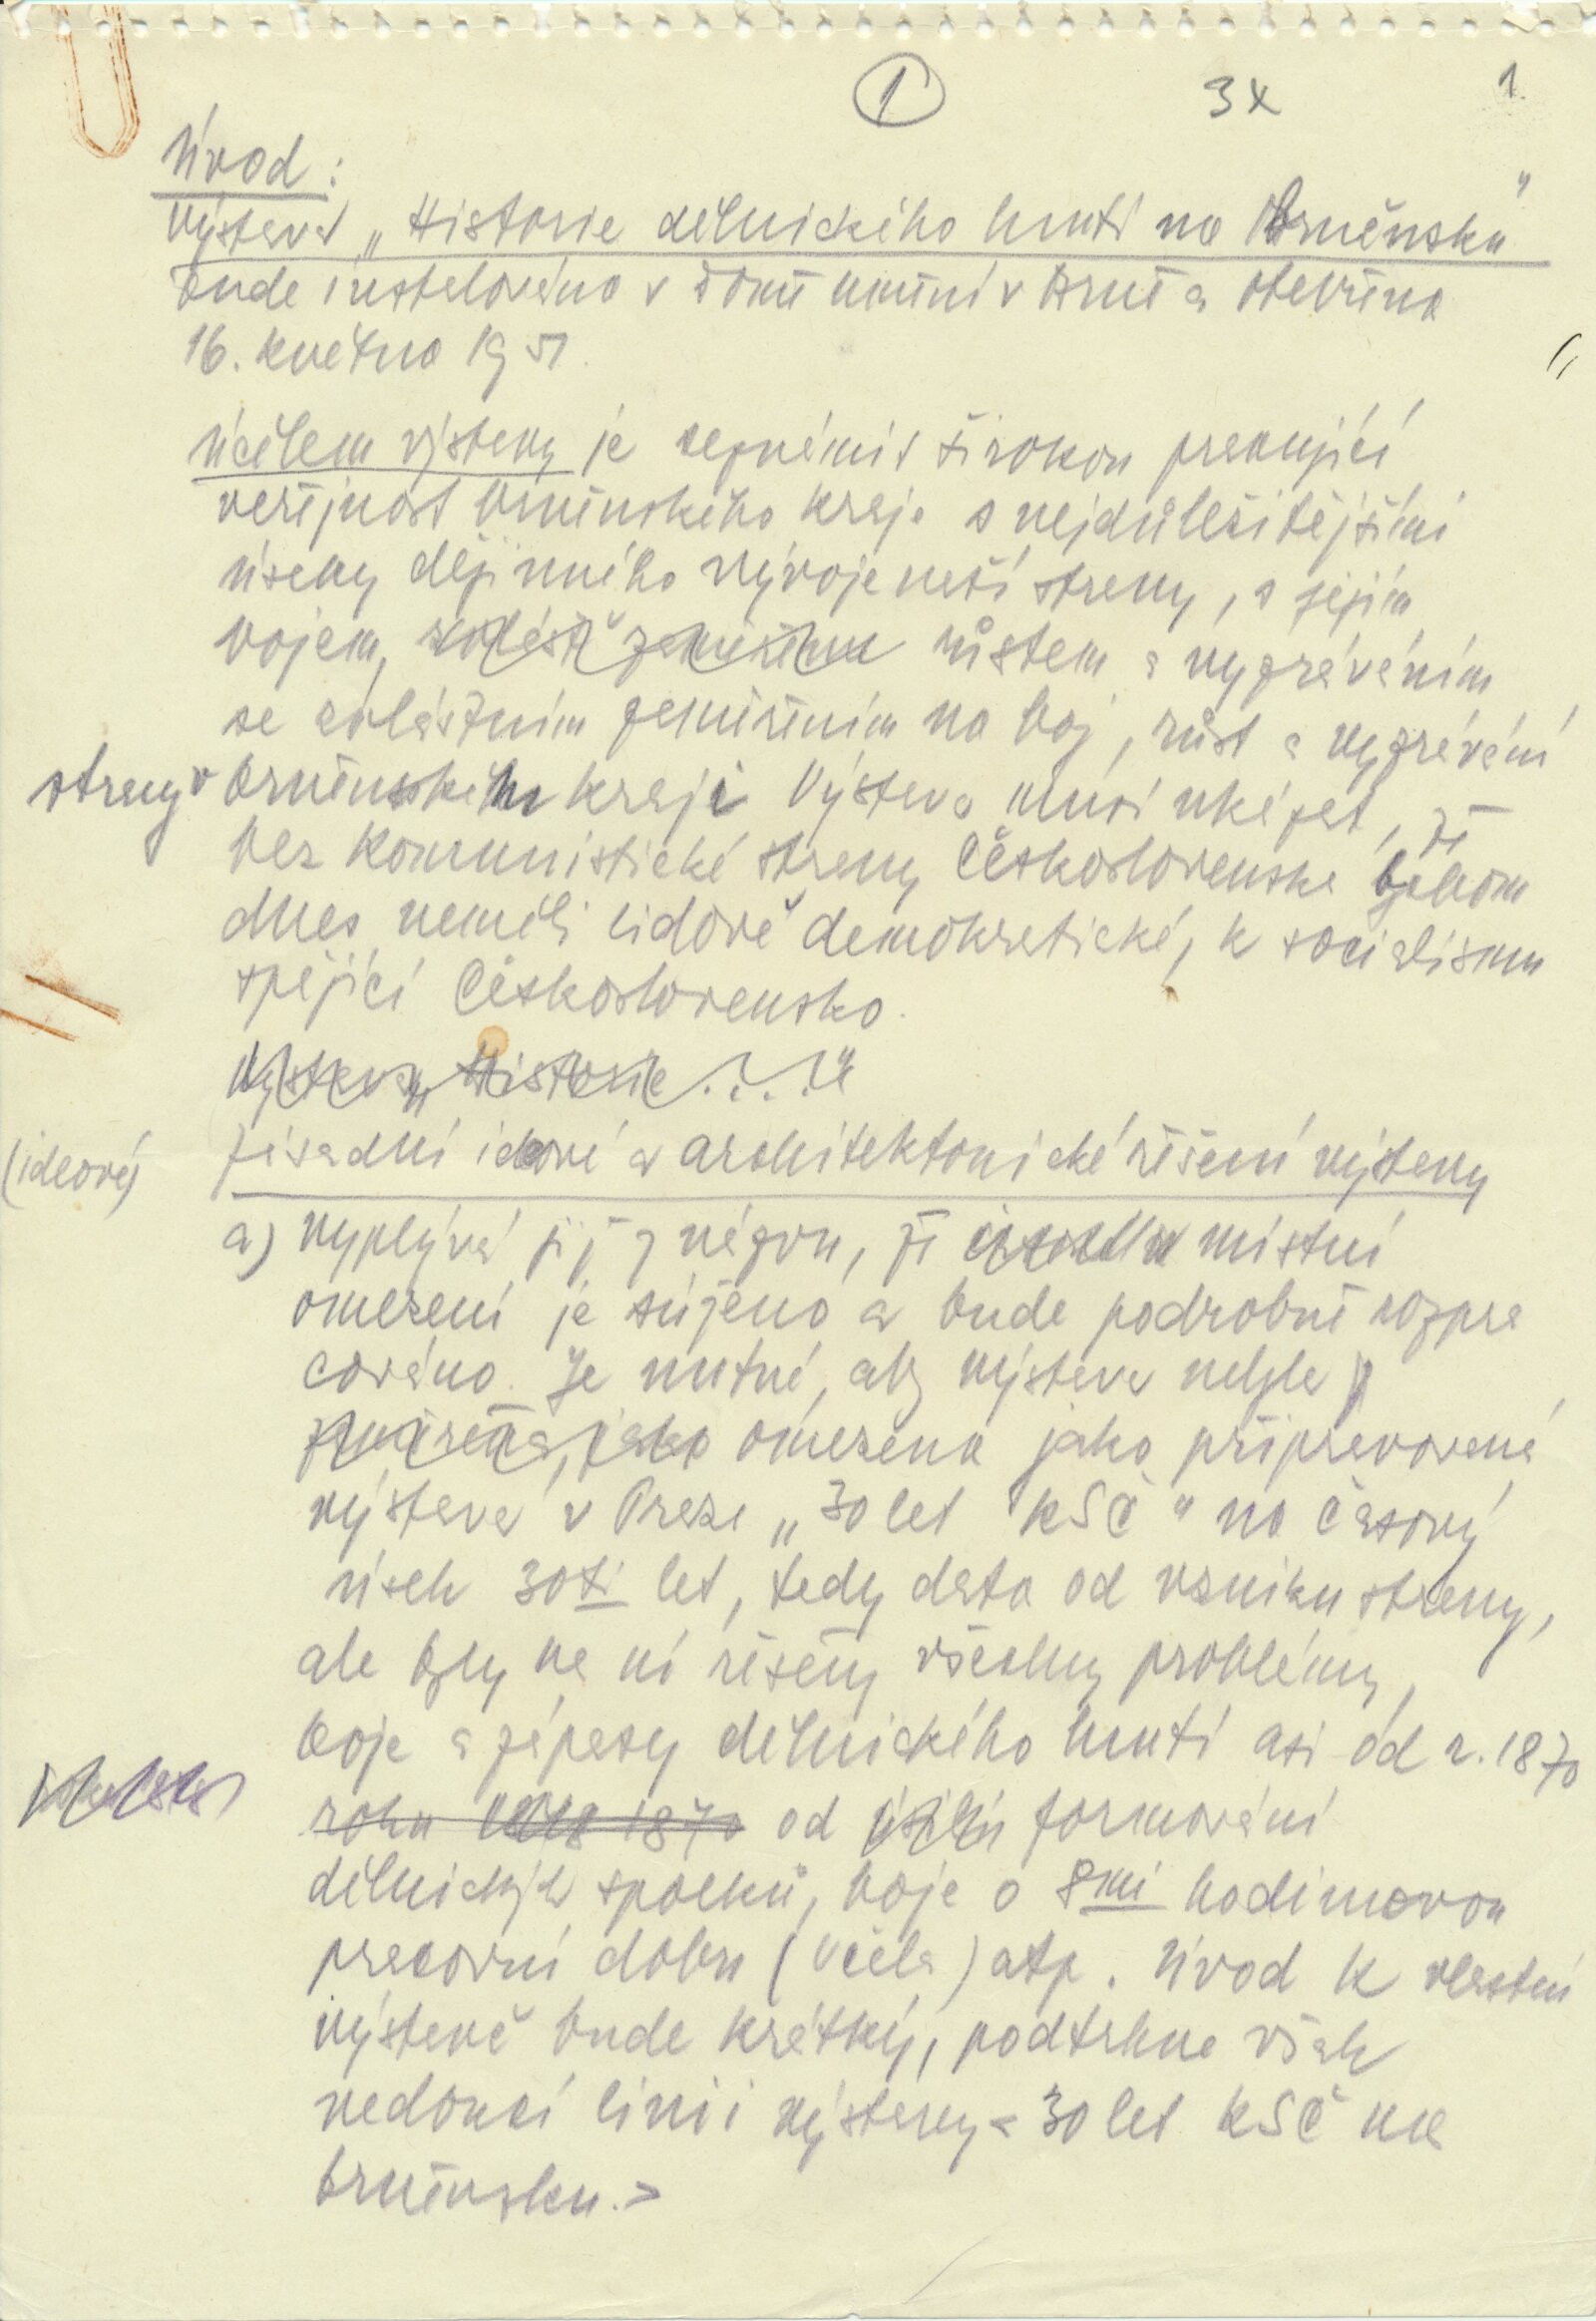 ① 3x 1
Úvod:
Výstava „Historie dělnického hnutí na Brněnsku“
bude instalována v Domě umění v Brně a otevřena
16. května 1951.
Účelem výstavy je seznámit širokou pracující
veřejnost brněnského kraje s nejdůležitějšími
úseky dějinného vývoje naší strany, s jejím
bojem, zvláště zaměřenu růstem a vyzráváním
se zvláštním zaměřením na boj, růst a vyzrávání
strany v brněnském kraji Výstava musí ukázat, že
bez Komunistické strany Československa bychom
dnes neměli lidově demokratické, k socialismu
spějící Československo.
Výstava „Historie . . . “
(ideový) Zásadní ideové a architektonické řešení výstavy
a) vyplývá již z názvu, že místní
omezení je zúženo a bude podrobně rozpra
cováno. Je nutné, aby výstava nebyla
zaměřena, jako omezena jako připravovaná
výstava v Praze „30 let KSČ“ na časový
úsek 30ti let, tedy data od vzniku strany,
ale byly na ní řešeny všechny problémy,
boje a zápasy dělnického hnutí asi od r. 1870
roku 1870 od formování
dělnických spolků, boje o 8mi hodinovou
pracovní dobu (Včela) atp. Úvod k vlastní
výstavě bude krátký, podtrhne však
vedoucí linii výstavy < 30 let KSČ na
brněnsku. >